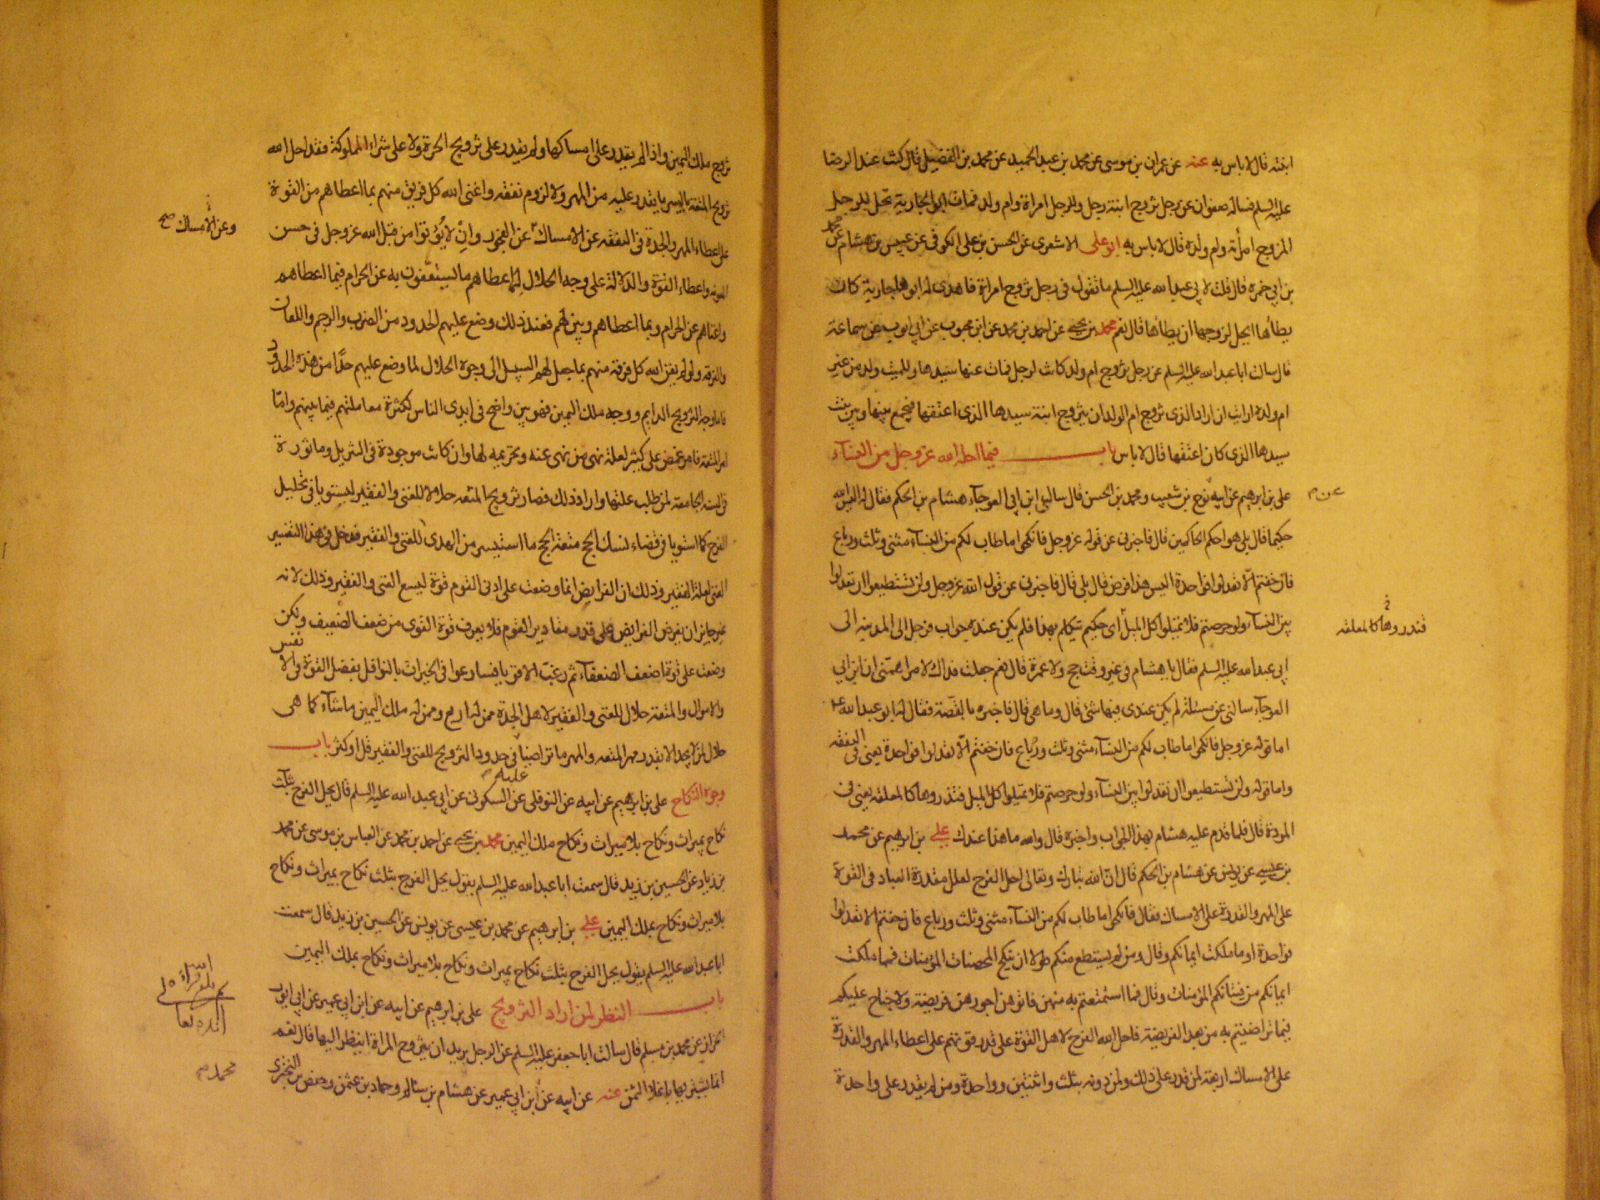 ابنته قال لا باس به عنه عن عمران بن موسى عن محمد بن عبد الحميد عن محمد بن الفضيل قال كنت عند الرضا
عليه السلم فساله صفوان عن رجل تزوج ابنة رجل وللرجل امراة وام ولد فمات ابو الجارية تحل للرجل
المزوج امرأته وام ولده قال لا باس به ابو على الاشعرى عن الحسن بن على الكوفى عن عبيس بن هشام عن محمد
بن ابى حمزه قال قلت لابى عبد الله عليه السلم ما تقول فى رجل تزوج امراة فاهدى له ابوها جارية كان
يطأها ايحل لزوجها ان يطاها قال نعم محمد بن يحيى عن احمد بن محمد عن ابن محبوب عن ابى ايوب عن سماعة
قال سالت ابا عبد الله عليه السلم عن رجل تزوج ام ولد كانت لرجل فمات عنها سيدها وللميت ولد من غير
ام ولده ارايت ان اراد الذى تزوج ام الولد ان يتزوج ابنة سيدها الذى اعتقها فيجمع بينها وبين بنت
سيدها الذى كان اعتقها قال لا باس باب فيما احله الله عز وجل من النسآء
على بن ابرهيم عن ابيه نوح بن شعيب ومحمد بن الحسن قال سال ابن ابى العوجآء هشام بن الحكم فقال له اليس الله
عن م
حكيما قال بلى هو احكم الحاكمين قال فاخبرنى عن قوله عز وجل فانكحوا ما طاب لكم من النسآء مثنى وثلث ورباع
فان خفتم الا تعدلوا فواحدة اليس هذا فرض قال بلى قال فاخبرنى عن قول الله عز وجل ولن تستطيعوا ان تعدلوا
بين النسآء ولو حرصتم فلا تميلوا كل الميل أى حكيم يتكلم بهذا فلم يكن عنده جواب فرحل الى المدينه الى
فتذروها كالمعلقه
ابى عبد الله عليه السلم فقال يا هشام فى غير وقت حج ولا عمرة قال نعم جعلت فداك لامر اهمنى ان ابن ابى
العوجآء سالنى عن مسئلة لم يكن عندى فيها شئ قال وما هى قال فاخبره بالقصة فقال له ابو عبد الله ع
اما قوله عز وجل فانكحوا ما طاب لكم من النسآء مثنى وثلث ورباع فان خفتم الا تعدلوا فواحدة يعنى فى النفقه
واما قوله ولن تستطيعوا ان تعدلوا بين النسآء ولو حرصتم فلا تميلوا كل الميل فتذروها كالمعلقه يعنى فى
المودة قال فلما قدم عليه هشام بهذا الجواب واخبره قال والله ما هذا عندك على بن ابرهيم عن محمد
بن عيسى عن يونس عن هشام بن الحكم قال ان الله تبارك وتعالى احل الفرج لعلل مقدرة العباد فى القوة
على المهر والقدرة على الامساك فقال فانكحوا ما طاب لكم من النسآء مثنى وثلث ورباع فان خفتم الا تعدلوا
فواحدة او ما ملكت ايمانكم وقال ومن لم يستطع منكم طولا ان ينكح المحصنات المؤمنات فمما ملكت
ايمانكم من فتياتكم المؤمنات وقال فما استمتعتم به منهن فاتوهن اجورهن فريضة ولا جناح عليكم
فيما تراضيتم به من بعد الفريضة فاحل الله الفرج لاهل القوة على قدر قوتهم على اعطاء المهر والقدرة
على الامساك اربعة لمن قدر على ذلك ولمن دونه بثلث واثنتين وواحدة ومن لم يقدر على واحدة
تزوج ملك اليمين واذا لم يقدر على امساكها ولم يقدر على تزويج الحرة ولا على شراء المملوكة فقد احل الله
تزويج المتعة بايسر ما يقدر عليه من المهر ولا لزوم نفقه واغنى الله كل فريق منهم بما اعطاهم من القوة
على اعطاء المهر والجدة فى النفقه عن الامساك عن الفجور وان لا يؤتوا من قبل الله عز وجل فى حسن
وعن الامساك صح
المعونه واعطاء القوة والدلالة على وجه الحلال لما اعطاهم ما يستعفون به عن الحرام فيما اعطاهم
واغناهم عن الحرام وبما اعطاهم وبين لهم فعند ذلك وضع عليهم الحدود من الضرب والرجم واللعان
والفرقه ولو لم يغن الله كل فرقة منهم بما جعل لهم السبيل الى وجوه الحلال لما وضع عليهم حدا من هذه الحدود
فاما وجه التزويج الدايم ووجه ملك اليمين فهو بين واضح فى ايدى الناس لكثرة معاملتهم فيما بينهم واما
امر المتعه فامر غمض على كثير لعلة نهى من نهى عنه وتحريمه لها وان كانت موجودة فى التنزيل وماثورة
فى السنه الجامعة لمن طلب علتها واراد ذلك فصار تزويج المتعه حلالا للغنى والفقير ليستويا فى تحليل
الفرج كما استويا فى قضاء نسك الحج متعة الحج ما استيسر من الهدى للغنى والفقير فدخل فى هذا التفسير
الغنى لعلة الفقير وذلك ان الفرايض انما وضعت على ادنى القوم قوة ليسع الغنى والفقير وذلك لانه
غير جايز ان يفرض الفرايض على قدر مقادير القوم فلا يعرف قوة القوى من ضعف الضعيف ولكن
وضعت على قوة اضعف الضعفآء ثم رغب الاقويا فسارعوا فى الخيرات بالنوافل بفضل القوة والانفس
والاموال والمتعه حلال للغنى والفقير لاهل الجدة ممن له اربع وممن له ملك اليمين ما شآء كما هى
حلال لمن لا يجد الا بقدر مهر المتعه والمهر ما تراضيا عليه فى حدود التزويج للغنى والفقير قل او كثر باب
وجوه النكاح على بن ابرهيم عن ابيه عن النوفلى عن السكونى عن ابى عبد الله عليه السلم قال يحل الفرج بثلث
نكاح بميراث ونكاح بلا ميراث ونكاح ملك اليمين محمد بن يحيى عن احمد بن محمد عن العباس بن موسى عن محمد
بن زياد عن الحسين بن زيد قال سمعت ابا عبد الله عليه السلم يقول يحل الفرج بثلث نكاح بميراث ونكاح
بلا ميراث ونكاح بملك اليمين على بن ابرهيم عن محمد بن عيسى عن يونس عن الحسين بن زيد قال سمعت
ابا عبد الله عليه السلم يقول يحل الفرج بثلث نكاح بميراث ونكاح بلا ميراث ونكاح بملك اليمين
باب النظر لمن اراد التزويج على بن ابرهيم عن ابيه عن ابن ابى عمير عن ابى ايوب
الخزاز عن محمد بن مسلم قال سالت ابا جعفر عليه السلم عن الرجل يريد ان يتزوج المراة اينظر اليها قال نعم
انما يشتريها باغلا الثمن عنه عن ابيه عن ابن ابى عمير عن هشام بن سالم وحماد بن عثمن وحفص بن البخترى
محمد م